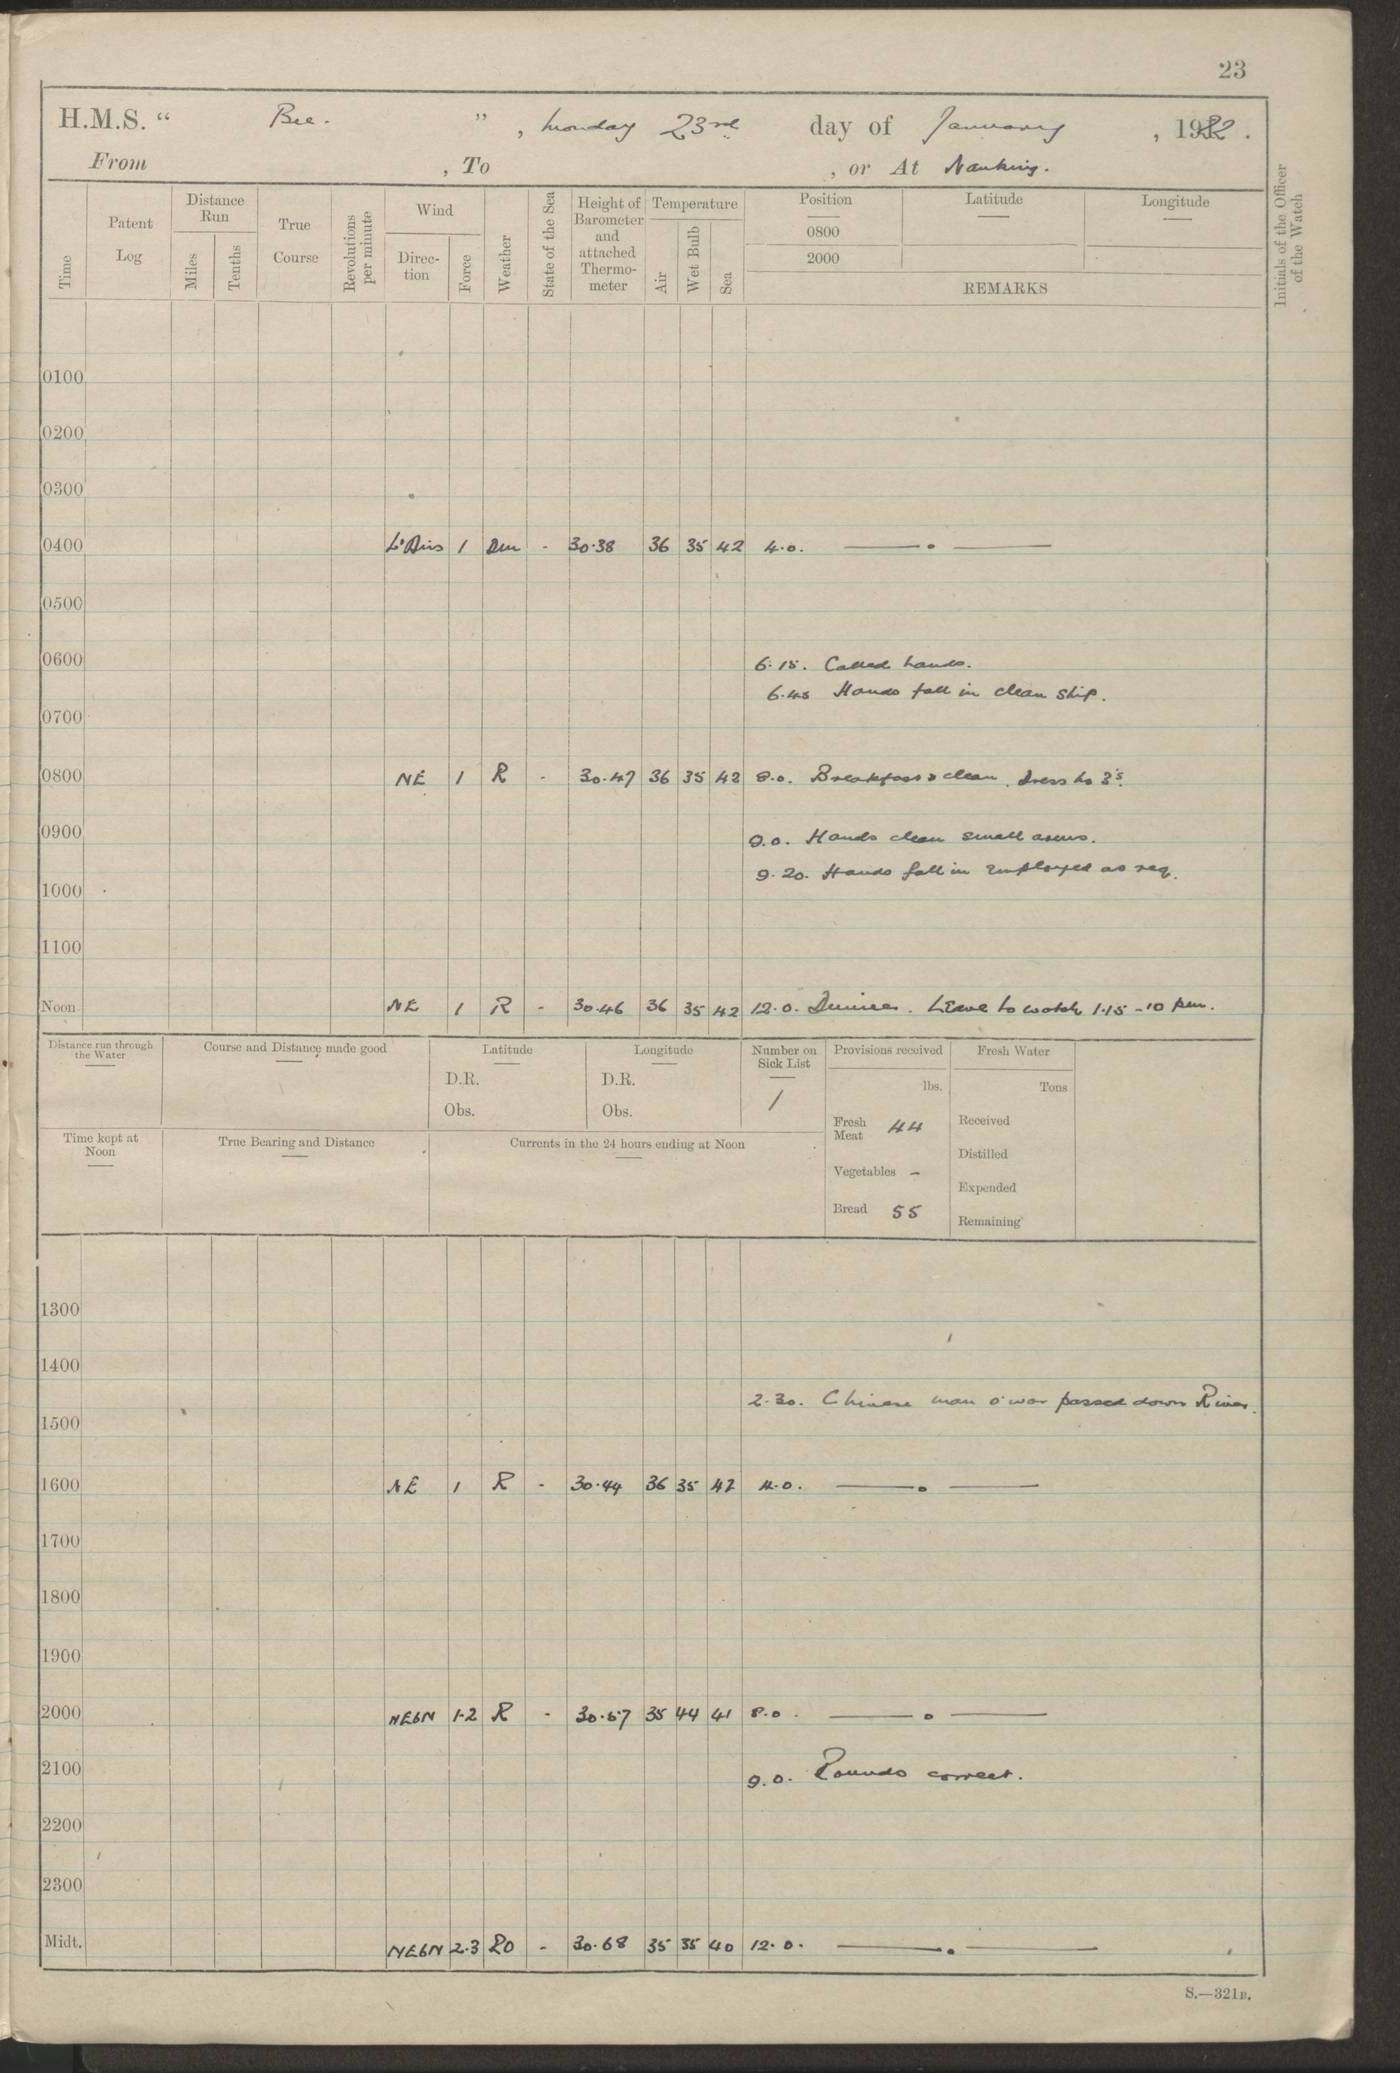 23
H.M.S. “ Bee. ” , Monday 23rd day of January , 1922 .
From , To , or At Nanking.
Time
Patent Log
Distance Run
Miles
Tenths
True Course
Revolutions per minute
Wind
Direc-tion
Force
Weather
State of the Sea
Height of Barometer and attached Thermo-meter
Temperature
Air
Wet Bulb
Sea
Position
0800
2000
Latitude
Longitude
REMARKS
Initials of the Officer of the Watch
0100
0200
0300
0400 Lt Airs 1 - 30.38 36 35 42 4.0. ——— . ———
0500
0600
6.15. Called hands.
6.45 Hands fall in clean ship.
0700
0800 NE 1 R - 30.47 36 35 42 8.0. Breakfast & clean. Dress No 3's.
0900
9.0. Hands clean small arms.
9.20. Hands fall in employed as req.
1000
1100
Noon NE 1 R - 30.46 36 35 42 12.0. Dinner. Leave to watch 1.15 - 10 pm.
Distance run through the Water
Course and Distance made good
Latitude
D.R.
Obs.
Longitude
D.R.
Obs.
Number on Sick List
1
Provisions received
lbs.
Fresh Meat 44
Vegetables -
Bread 55
Fresh Water
Tons
Received
Distilled
Expended
Remaining
Time kept at Noon
True Bearing and Distance
Currents in the 24 hours ending at Noon
1300
1400
2.30. Chinese man o'war passed down River.
1500
1600 NE 1 R - 30.44 36 35 42 4.0. ——— . ———
1700
1800
1900
2000 NEbN 1-2 R - 30.57 35 44 41 8.0. ——— . ———
2100
9.0. Rounds correct.
2200
2300
Midt. NEbN 2.3 RO - 30.68 35 35 40 12.0. ——— . ———
S.—321B.